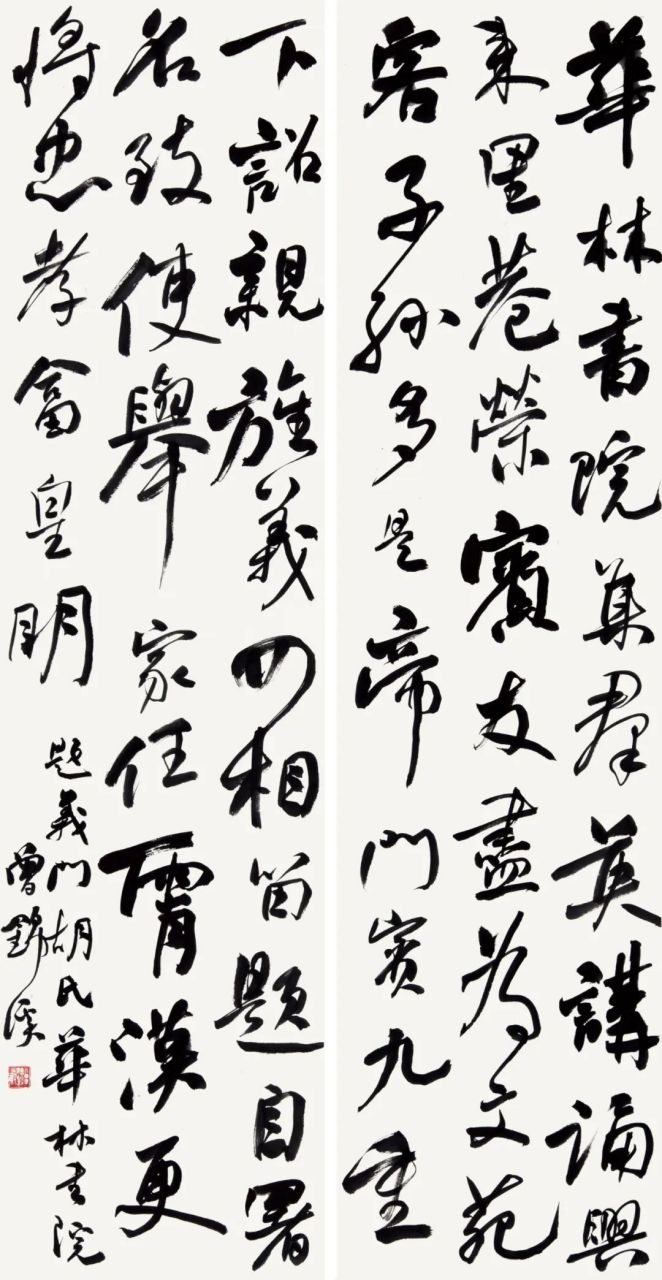 華林書院集群英講誦興
来里巷榮賓友盡為文苑
客子孫多是帝門賓九重
下詔親旌義四相留題自署
名致使舉家任霄漢更
將忠孝奮皇明
題義門胡氏華林書院
曾錦溪